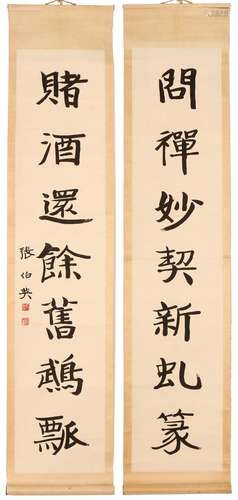 問禪妙契新虬篆
賭酒還餘舊瓢
張伯英